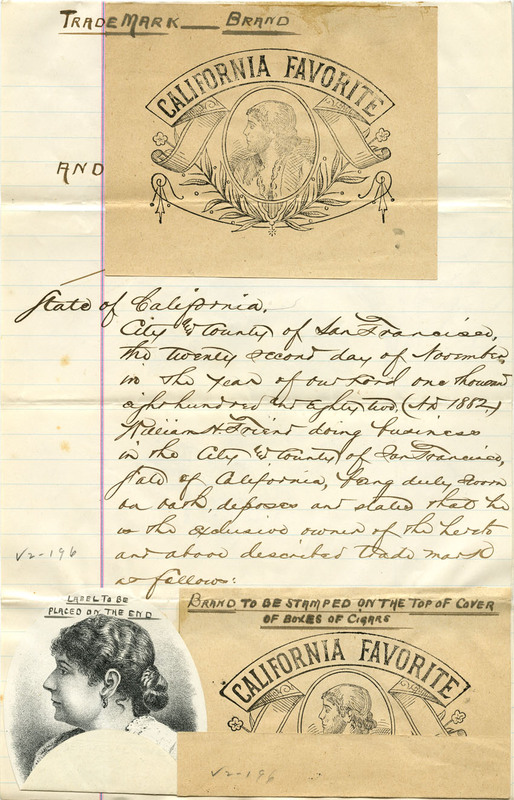 TRADE MARK — BRAND
CALIFORNIA FAVORITE
AND
State of California.
City & County of San Francisco,
the twenty second day of November
in the year of our Lord one thousand
eight hundred and eighty two, (AD 1882.)
William H Friend doing business
in the City & County of San Francisco,
State of California, being duly sworn
on oath, deposes and states that he
is the exclusive owner of the hereto
and above described trade mark
as follows:
V2-196
LABEL TO BE
PLACED ON THE END
BRAND TO BE STAMPED ON THE TOP OF COVER
OF BOXES OF CIGARS
CALIFORNIA FAVORITE
V2-196